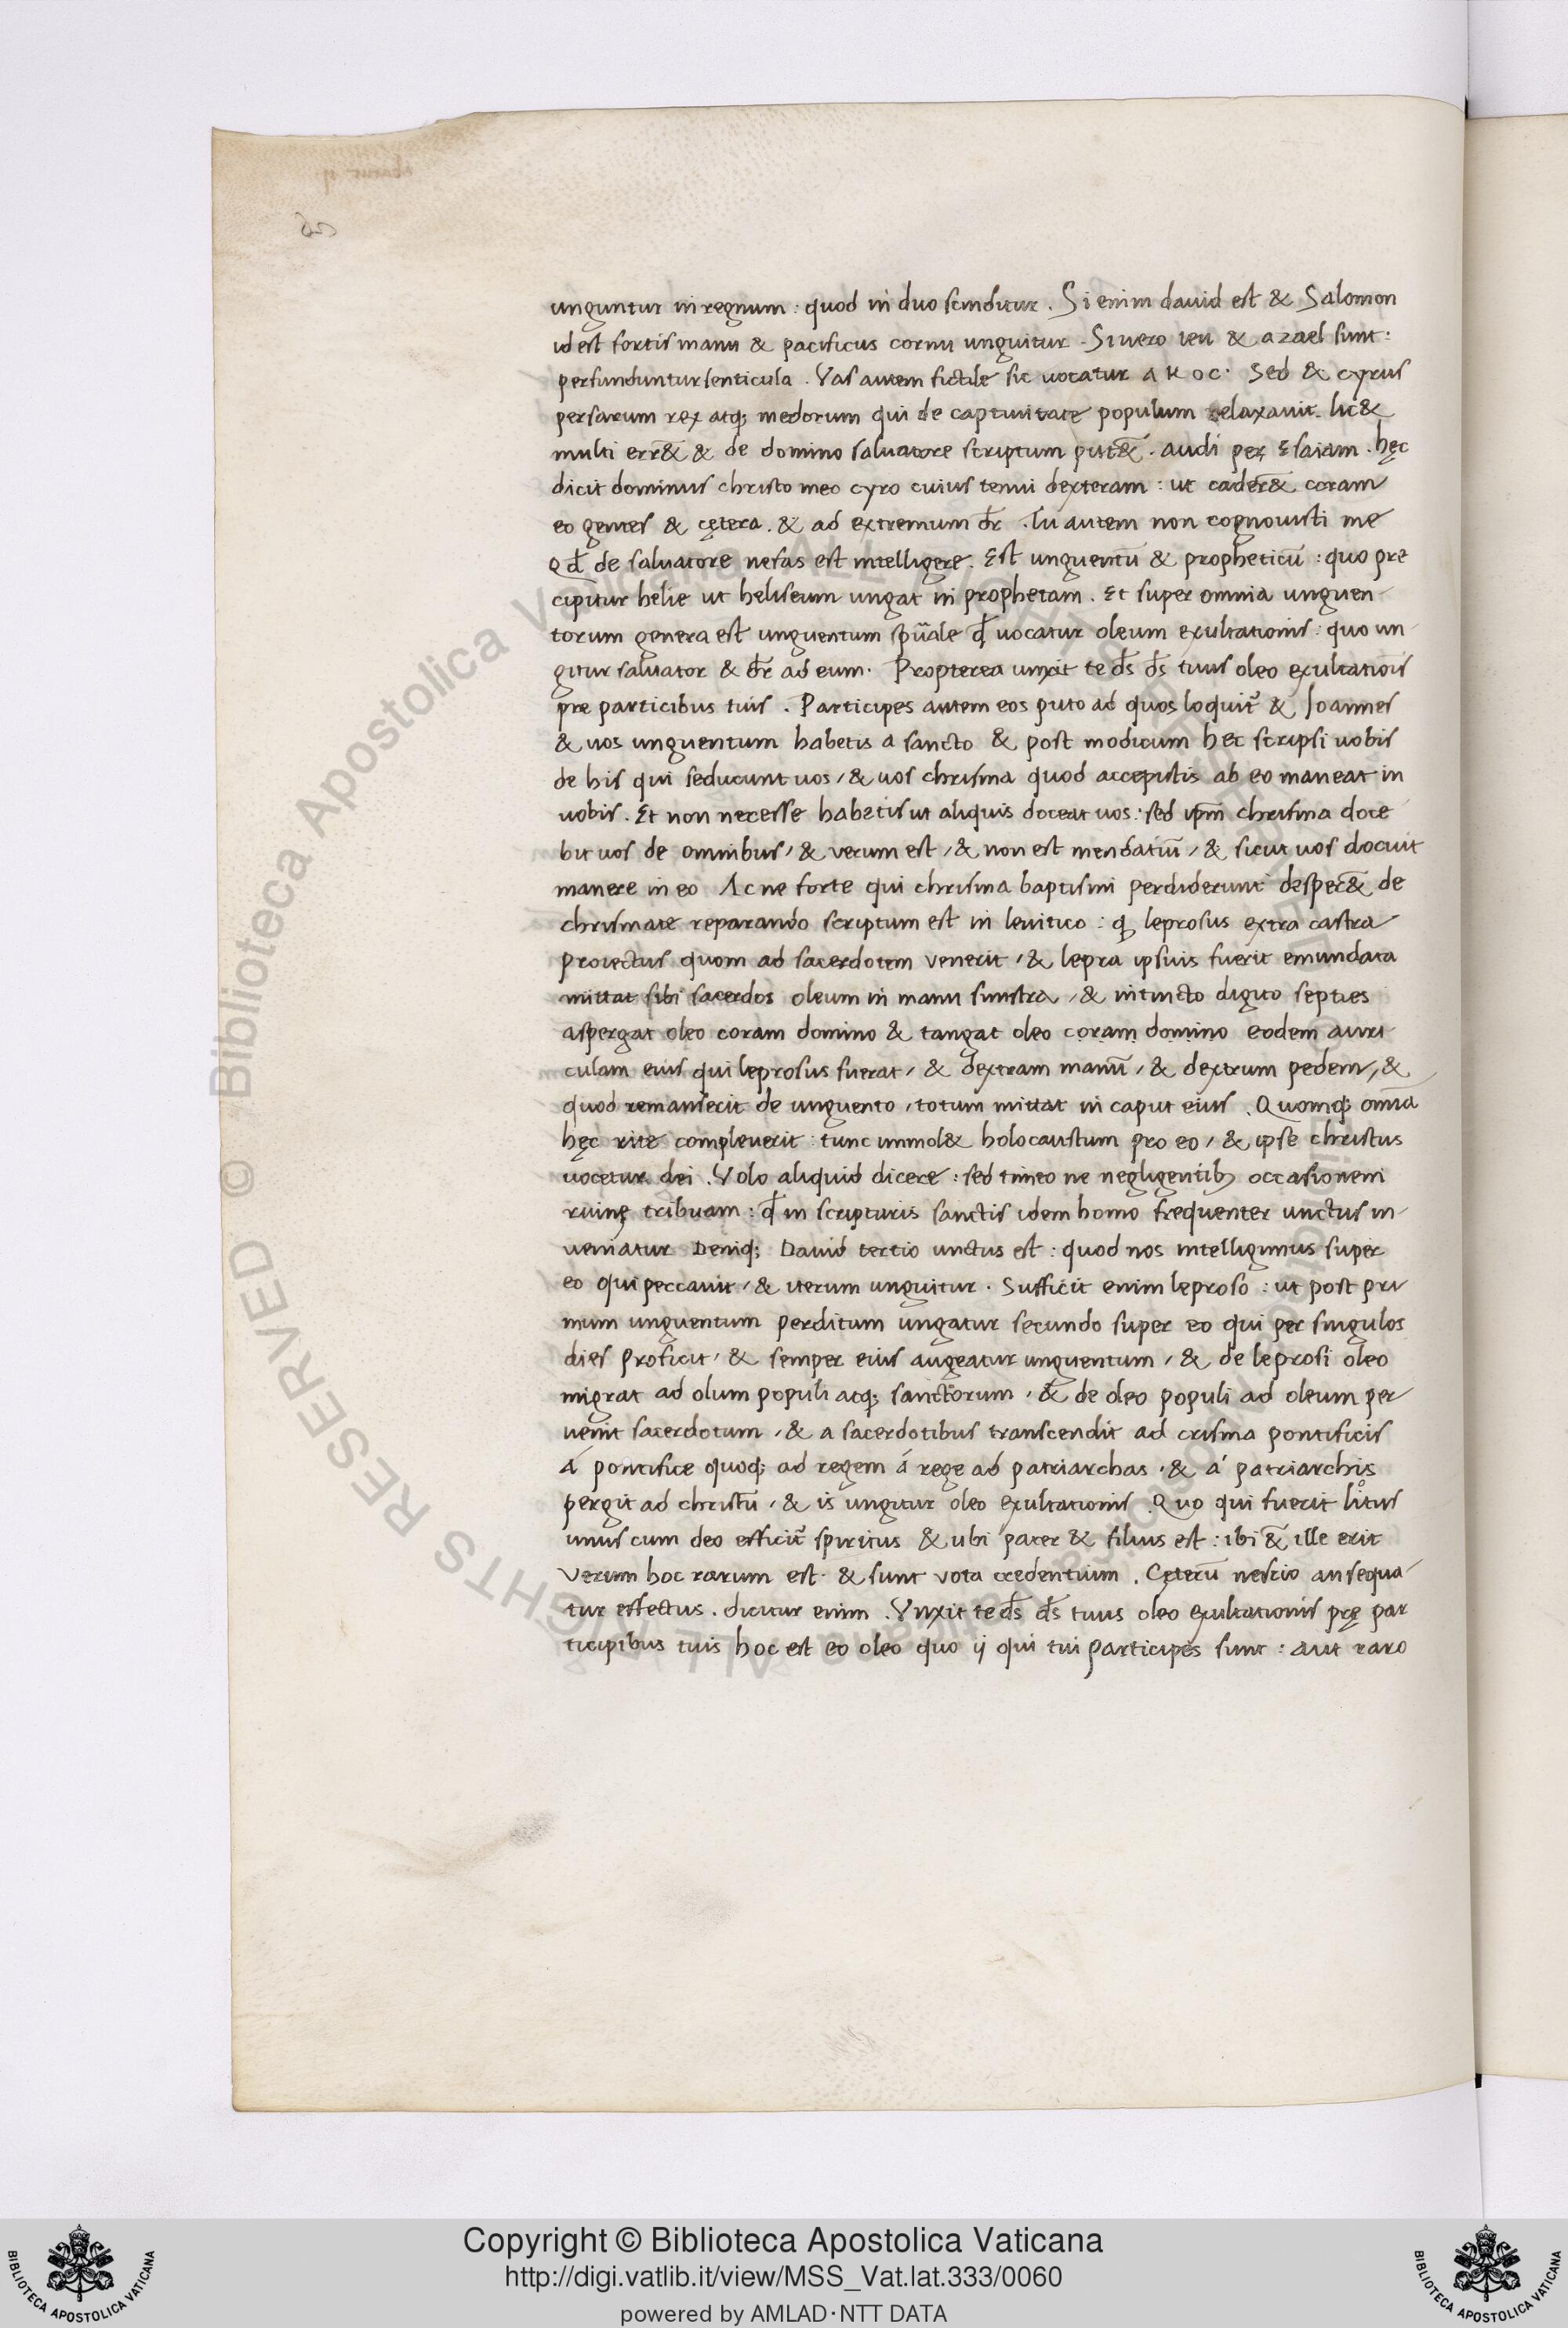 unguntur in regnum : quod in duo scinditur . Si enim dauid est & Salomon
id est fortis manu & pacificus cornu unguitur . Si uero ieu & azael sunt :
perfunduntur lenticula . Vas autem fictile sic uocatur a κ ο c · Sed & cyrus
persarum rex atq; medorum qui de captiuitate populum relaxauit . hic &
multi err&̄ & de domino saluatore scriptum put&̄ . audi per Esaiam . hęc
dicit dominus christo meo cyro cuius tenui dexteram : ut cader&̄ coram
eo gentes & cętera . & ad extremum dr̄ . Tu autem non cognouisti me
Qd̄ de saluatore nefas est intelligere . Est unguentū & propheticū : quo pre
cipitur helie ut heliseum ungat in prophetam . Et super omnia unguen-
torum genera est unguentum spūale qd̄ uocatur oleum exultationis : quo un-
gitur saluator & dr̄ ad eum . Propterea unxit te ds̄ ds̄ tuus oleo exultatiōis
pre particibus tuis . Participes autem eos puto ad quos loquit᷑ & Joannes
& uos unguentum habetis a sancto & post modicum hec scripsi uobis
de his qui seducunt uos , & uos chrisma quod accepistis ab eo maneat in
uobis . Et non necesse habetis ut aliquis doceat uos : sed ipm̄ chrisma doce
bit uos de omnibus , & uerum est , & non est mendatiū , & sicut uos docuit
manere in eo Ac ne forte qui chrisma baptismi perdiderunt desper&̄ de
chrismate reparando scriptum est in leuitico : q leprosus extra castra
proiectus quom ad sacerdotem venerit , & lepra ipsius fuerit emundata
mittat sibi sacerdos oleum in manu sinistra , & intincto digito septies
aspergat oleo coram domino & tangat oleo coram domino eodem auri-
culam eius qui leprosus fuerat , & dextram manū , & dextrum pedem , &
quod remanserit de unguento , totum mittat in caput eius . Quomq; omīa
hęc rite compleuerit : tunc immol& holocaustum pro eo , & ipse christus
uocetur dei . Volo aliquid dicere : sed timeo ne negligentib; occasionem
ruinę tribuam : qd̄ in scripturis sanctis idem homo frequenter unctus in-
ueniatur Deniq; Dauid tertio unctus est : quod nos intelligimus super
eo qui peccauit , & iterum unguitur . Sufficit enim leproso : ut post pri
mum unguentum perditum ungatur secundo super eo qui per singulos
dies proficit , & semper eius augeatur unguentum , & de leprosi oleo
migrat ad olum populi atq; sanctorum , & de oleo populi ad oleum per
uenit sacerdotum , & a sacerdotibus transcendit ad crisma pontificis
á pontifice quoq; ad regem á rege ad patriarchas , & á patriarchis
pergit ad christū , & is ungitur oleo exultationis . Quo qui fuerit litus
unus cum deo efficit᷑ spiritus & ubi pater & filius est : ibi & ille erit
verum hoc rarum est · & sunt vota credentium . Cęterū nescio an sequa-
tur effectus . dicitur enim . Vnxit te ds̄ ds̄ tuus oleo exultationis prę par
ticipibus tuis hoc est eo oleo quo ij qui tui participes sunt : aut raro
© Biblioteca Apostolica Vaticana ALL RIGHTS RESERVED
Copyright © Biblioteca Apostolica Vaticana
http://digi.vatlib.it/view/MSS_Vat.lat.333/0060
powered by AMLAD·NTT DATA
BIBLIOTECA APOSTOLICA VATICANA
BIBLIOTECA APOSTOLICA VATICANA